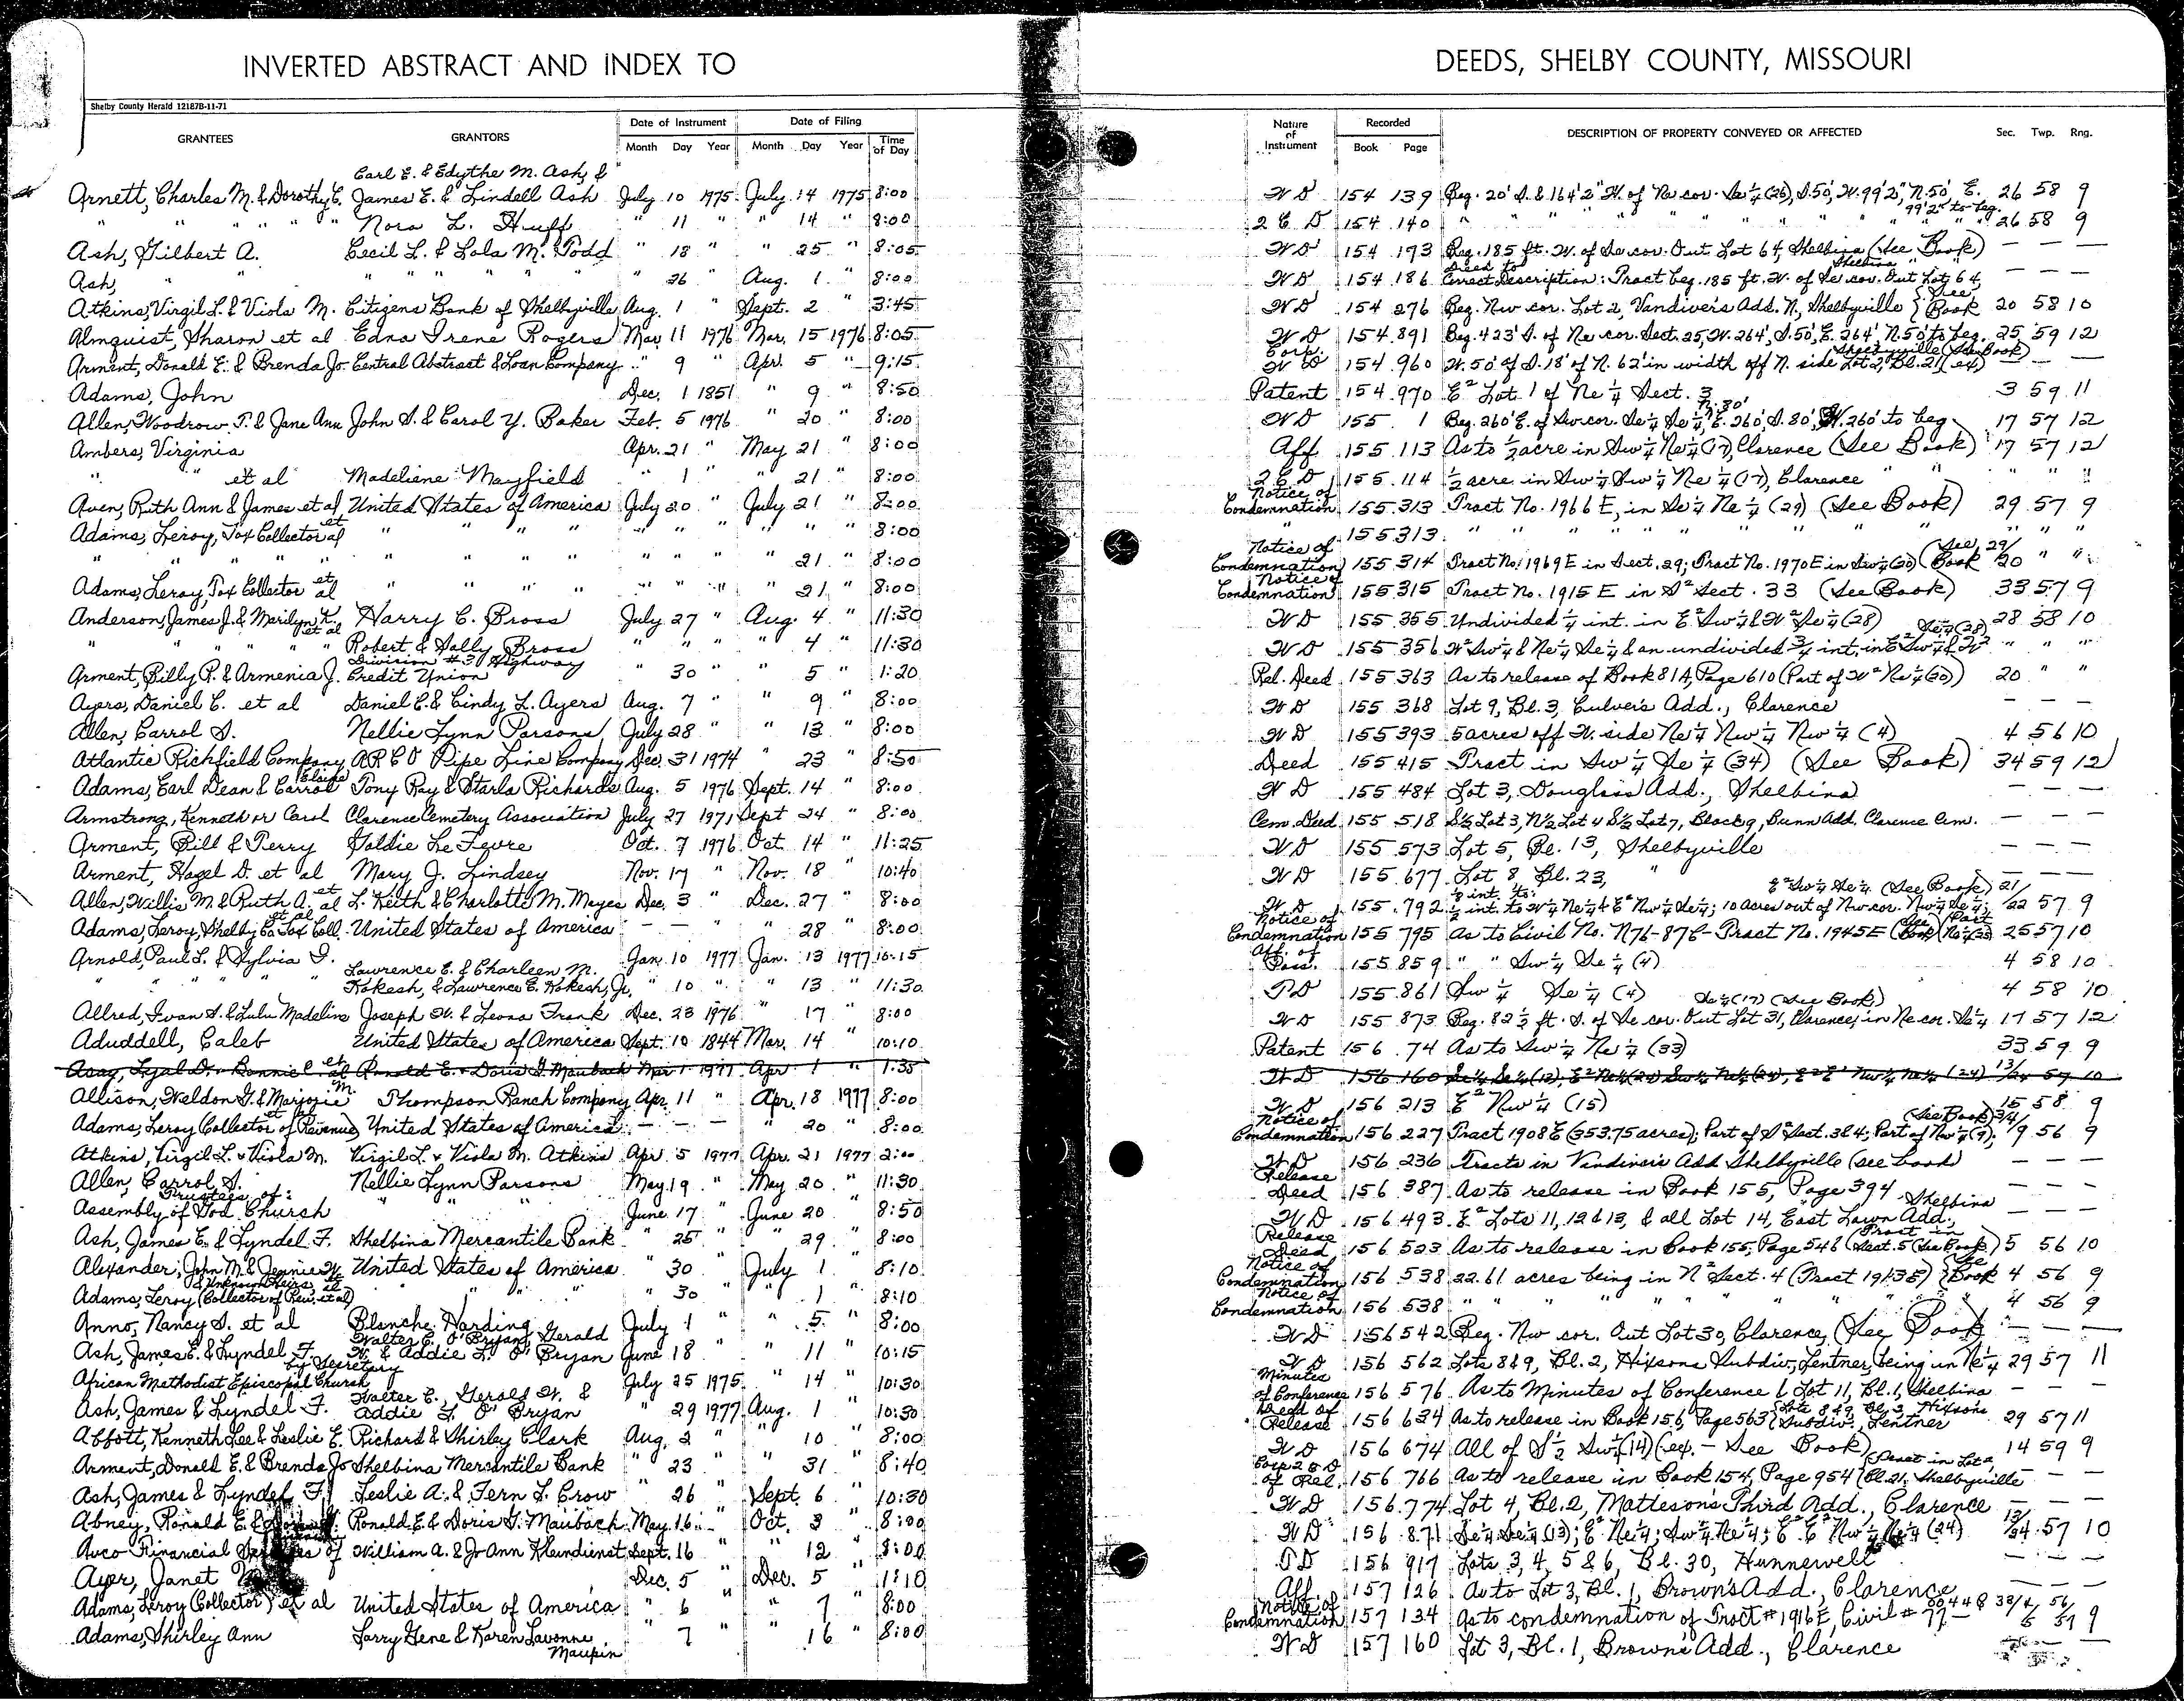 INVERTED ABSTRACT AND INDEX TO
DEEDS, SHELBY COUNTY, MISSOURI
Shelby County Herald 12187B-11-71
GRANTEES GRANTORS Date of Instrument Month Day Year Date of Filing Month Day Year Time of Day
Nature of Instrument Recorded Book Page DESCRIPTION OF PROPERTY CONVEYED OR AFFECTED Sec. Twp. Rng.
Carl E. & Edythe M. Ash, &
Arnett, Charles M. & Dorothy E. James E. & Lindell Ash July 10 1975 July 14 1975 8:00 WD 154 139 Beg. 20' S. & 164'2" W. of Ne cor. Se 1/4 (26), S. 50', W. 99'2", N. 50', E. 99'2" to beg. 26 58 9
" " " " " Nora L. Huff " 11 " " 14 " 8:00 2 C D 154 140 " " " " " " " " 26 58 9
Ash, Gilbert A. Cecil L. & Lola M. Todd " 18 " " 25 " 8:05 WD 154 173 Beg. 185 ft. W. of Se cor. Out Lot 64, Shelbina (See Book) — — —
Ash, " " " " " " " " 26 " Aug. 1 " 8:00 WD 154 186 Deed to Correct Description: Tract beg. 185 ft. W. of Se cor. Out Lot 64, Shelbina " " — — —
Atkins, Virgil L. & Viola M. Citizens Bank of Shelbyville Aug. 1 " Sept. 2 " 3:45 WD 154 276 Beg. Nw cor. Lot 2, Vandivers Add. N., Shelbyville {See Book 20 58 10
Almquist, Sharon et al Edna Irene Rogers Mar. 11 1976 Mar. 15 1976 8:05 WD 154 891 Beg. 423' S. of Ne cor. Sect. 25, W. 264', S. 50', E. 264', N. 50' to beg. 25 59 12
Arment, Donald E. & Brenda Jo Central Abstract & Loan Company " 9 " Apr. 5 " 9:15 Corp. WD 154 960 W. 50' of S. 18' of N. 62' in width off N. side Lot 2, Bl. 21 (ex) Shelbyville (See Book) — —
Adams, John Dec. 1 1851 " 9 " 8:50 Patent 154 970 E² Lot 1 of Ne 1/4 Sect. 3 3 59 11
Allen, Woodrow T. & Jane Ann John S. & Carol Y. Baker Feb. 5 1976 " 20 " 8:00 WD 155 1 Beg. 260' E. of Sw cor. Se 1/4 Se 1/4, N. 80' E. 260', S. 80', W. 260' to beg 17 57 12
Ambers, Virginia Apr. 21 " May 21 " 8:00 Aff 155 113 As to 1/2 acre in Sw 1/4 Ne 1/4 (17), Clarence (See Book) 17 57 12
" et al Madeliene Mayfield " 1 " " 21 " 8:00 2 C D 155 114 1/2 acre in Sw 1/4 Sw 1/4 Ne 1/4 (17), Clarence " " " " "
Aven, Ruth Ann & James et al United States of America July 20 " July 21 " 8:00 Notice of Condemnation 155 313 Tract No. 1966 E, in Se 1/4 Ne 1/4 (29) (See Book) 29 57 9
Adams, Leroy, Tax Collector et al " " " " " " " " " 8:00 " 155 313 " " " " " " " " "
" " " " " " " " " " " 21 " 8:00 Notice of Condemnation 155 314 Tract No. 1969 E in Sect. 29; Tract No. 1970 E in Sw 1/4 (20) (See Book 29/20 " "
Adams, Leroy, Tax Collector et al " " " " " " " " 21 " 8:00 Notice of Condemnation 155 315 Tract No. 1915 E in S² Sect. 33 (See Book) 33 57 9
Anderson, James J. & Marilyn K. et al Harry C. Bross July 27 " Aug. 4 " 11:30 WD 155 355 Undivided 1/4 int. in E² Sw 1/4 & W² Se 1/4 (28) 28 58 10
" " " " " Robert & Sally Bross " " " " 4 " 11:30 WD 155 356 W² Sw 1/4 & Ne 1/4 Se 1/4 & an undivided 3/4 int. in E² Sw 1/4 & W² Se 1/4 (28) " " "
Arment, Billy P. & Armenia J. Division #3 Highway Credit Union " 30 " " 5 " 1:20 Rel. Deed 155 363 As to release of Book 81A, Page 610 (Part of W² Ne 1/4 (20)) 20 " "
Ayers, Daniel C. et al Daniel C. & Cindy L. Ayers Aug. 7 " " 9 " 8:00 WD 155 368 Lot 9, Bl. 3, Culver's Add., Clarence — — —
Allen, Carrol S. Nellie Lynn Parsons July 28 " " 13 " 8:00 WD 155 393 5 acres off W. side Ne 1/4 Nw 1/4 Nw 1/4 (4) 4 56 10
Atlantic Richfield Company ARCO Pipe Line Company Dec. 31 1974 " 23 " 8:50 Deed 155 415 Tract in Sw 1/4 Se 1/4 (34) (See Book) 34 59 12
Adams, Earl Dean & Carrol Elaine Tony Ray & Starla Richards Aug. 5 1976 Sept. 14 " 8:00 WD 155 484 Lot 3, Douglass Add., Shelbina — — —
Armstrong, Kenneth or Carol Clarence Cemetery Association July 27 1971 Sept 24 " 8:00 Cem. Deed 155 518 S½ Lot 3, N½ Lot 4 S½ Lot 7, Block 9, Bunn Add. Clarence Cem. — — —
Arment, Bill & Terry Goldie LeFevre Oct. 7 1976 Oct. 14 " 11:25 WD 155 573 Lot 5, Bl. 13, Shelbyville — — —
Arment, Hazel D. et al Mary J. Lindsey Nov. 17 " Nov. 18 " 10:40 WD 155 677 Lot 8 Bl. 23, " — — —
Allen, Willis M. & Ruth A. et al L. Keith & Charlotte M. Mayes Dec. 3 " Dec. 27 " 8:00 WD 155 792 1/2 int. to W 1/4 Ne 1/4 & E² Nw 1/4 Se 1/4; 10 acres out of Nw cor. Nw 1/4 Se 1/4; E² Sw 1/4 Se 1/4 (See Book) 21/22 57 9
Adams, Leroy, Shelby Co. Tax Coll. et al United States of America — — " 28 " 8:00 Notice of Condemnation 155 795 As to Civil No. N76-87C- Tract No. 1945E (See Book) 25 57 10
Arnold, Paul L. & Sylvia G. Jan. 10 1977 Jan. 13 1977 10:15 Aff. of Poss. 155 859 " " Sw 1/4 Se 1/4 (4) 4 58 10
" " " " Lawrence E. & Charleen M. Kokesh, & Lawrence E. Kokesh, Jr. " 10 " " 13 " 11:30 TD 155 861 Sw 1/4 Se 1/4 (4) 4 58 10
Allred, Ivan S. & Lulu Madeline Joseph W. & Leona Frank Dec. 23 1976 " 17 " 8:00 WD 155 873 Beg. 82 1/2 ft. S. of Se cor. Out Lot 31, Clarence, in Ne cor. Se 1/4 Se 1/4 (17) (See Book) 17 57 12
Aduddell, Caleb United States of America Sept. 10 1844 Mar. 14 " 10:10 Patent 156 74 As to Sw 1/4 Ne 1/4 (33) 33 59 9
Ronald E. & Doris G. Maubach Mar 1 1977 Apr 1 " 1:35 WD 156 160 Se 1/4 Se 1/4 (13), E² Ne 1/4 (24) Sw 1/4 Ne 1/4 (24), E² E² Nw 1/4 Ne 1/4 (24) 13/24 57 10
Allison, Weldon G. & Marjorie M. Thompson Ranch Company Apr. 11 " Apr. 18 1977 8:00 WD 156 213 E² Nw 1/4 (15) 15 58 9
Adams, Leroy (Collector of Revenue) et al United States of America — — — " 20 " 8:00 Notice of Condemnation 156 227 Tract 1908E (353.75 acres); Part of S² Sect. 3 & 4; Part of Nw 1/4 (9); (See Book) 3/4/9 56 9
Atkins, Virgil L. & Viola M. Virgil L. & Viola M. Atkins Apr. 5 1977 Apr. 21 1977 2:00 WD 156 236 Tracts in Vandiver's Add Shelbyville (see book) — — —
Allen, Carrol S. Nellie Lynn Parsons May 19 " May 20 " 11:30 Release Deed 156 387 As to release in Book 155, Page 394 — — —
Trustees of:
Assembly of God Church " " June 17 " June 20 " 8:50 WD 156 493 E² Lots 11, 12 & 13, & all Lot 14, East Lawn Add., Shelbina — — —
Ash, James E. & Lyndel F. Shelbina Mercantile Bank " 25 " " 29 " 8:00 Release Deed 156 523 As to release in Book 155, Page 548 (Tract in Sect. 5 (See Book) 5 56 10
Alexander, John M. & Jennie W. & Unknown Heirs et al United States of America " 30 " July 1 " 8:10 Notice of Condemnation 156 538 22.61 acres being in N² Sect. 4 (Tract 1913E) {See Book 4 56 9
Adams, Leroy (Collector of Rev. et al) " " " " 30 " " 1 " 8:10 Notice of Condemnation 156 538 " " " " " " " " 4 56 9
Anno, Nancy S. et al Blanche Harding July 1 " " 5 " 8:00 WD 156 542 Beg. Nw cor. Out Lot 30, Clarence, (See Book — — —
Ash, James E. & Lyndel F. Walter C. O'Bryan, Gerald W. & Addie L. O'Bryan June 18 " " 11 " 10:15 WD 156 562 Lots 8 & 9, Bl. 2, Hixsons Subdiv., Lentner, being in Ne 1/4 29 57 11
African Methodist Episcopal Church by Secretary July 25 1975 " 14 " 10:30 Minutes of Conference 156 576 As to Minutes of Conference & Lot 11, Bl. 1, Shelbina — — —
Ash, James & Lyndel F. Walter C., Gerald W. & Addie L. O'Bryan " 29 1977 Aug. 1 " 10:30 Deed of Release 156 634 As to release in Book 156, Page 563 {Lots 8 & 9, Bl. 2, Hixsons Subdiv., Lentner 29 57 11
Abbott, Kenneth Lee & Leslie E. Richard & Shirley Clark Aug. 2 " " 10 " 8:00 WD 156 674 All of S 1/2 Sw 1/4 (14) (ex. — See Book) 14 59 9
Arment, Donald E. & Brenda Jo Shelbina Mercantile Bank " 23 " 31 " 8:40 Corp 2 & D of Rel. 156 766 As to release in Book 154, Page 954 (Tract in Lot 2, Bl. 21, Shelbyville — —
Ash, James & Lyndel F. Leslie A. & Fern L. Crow " 26 " Sept. 6 " 10:30 WD 156 774 Lot 4, Bl. 2, Matteson's Third Add., Clarence — — —
Abney, Ronald E. & Ronald E. & Doris G. Maubach May 16 " Oct. 3 " 8:00 WD 156 871 Se 1/4 Se 1/4 (13); E² Ne 1/4; Sw 1/4 Ne 1/4; E² E² Nw 1/4 Ne 1/4 (24) 13/24 57 10
Avco Financial Services of William A. & Jo Ann Kleindienst Sept. 16 " 12 " 8:00 TD 156 917 Lots 3, 4, 5 & 6, Bl. 30, Hunnewell — — —
Ayer, Janet Dec. 5 " Dec. 5 " 1:10 Aff. 157 126 As to Lot 3, Bl. 1, Brown's Add., Clarence — — —
Adams, Leroy (Collector) et al United States of America " 6 " " 7 " 8:00 Notice of Condemnation 157 134 As to condemnation of Tract # 1916E, Civil # 77- 9
Adams, Shirley Ann Larry Gene & Karen Lavonne Maupin " 7 " " 16 " 8:00 WD 157 160 Lot 3, Bl. 1, Brown's Add., Clarence